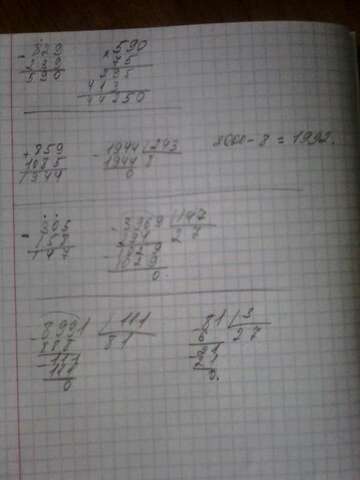 - 829
239
590
× 590
75
295
413
44250
+ 859
1085
1944
- 1944 | 243
1944 8
0
2000 - 8 = 1992.
- 305
158
147
- 3969 | 147
294 27
- 1029
1029
0.
- 8991 | 111
888 81
- 111
111
0
- 81 | 3
6 27
- 21
21
0.